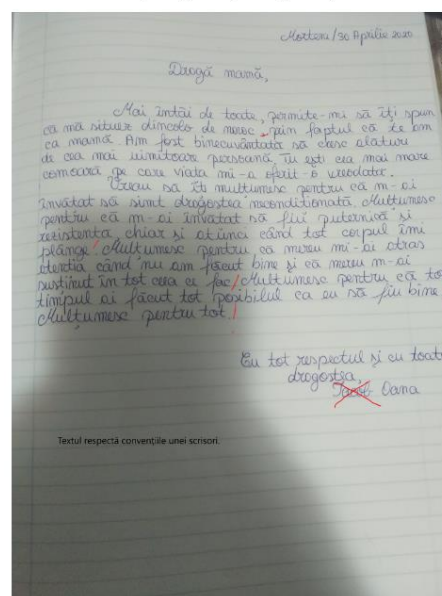 Morteni/30 Aprilie 2020
Dragă mamă,
Mai întâi de toate, permite-mi să îți spun
că mă situez dincolo de noroc prin faptul că te am
ca mamă. Am fost binecuvântată să cresc alături
de cea mai uimitoare persoană. Tu ești cea mai mare
comoară pe care viața mi-a oferit-o vreodată.
Vreau să îți mulțumesc pentru că m-ai
învățat să simt dragostea necondiționată. Mulțumesc
pentru că m-ai învățat să fiu puternică și
rezistentă, chiar și atunci când tot corpul îmi
plânge. Mulțumesc pentru că mereu mi-ai atras
atenția când nu am făcut bine și că mereu m-ai
susținut în tot ceea ce fac. Mulțumesc pentru că tot
timpul ai făcut tot posibilul ca eu să fiu bine.
Mulțumesc pentru tot!
Cu tot respectul și cu toată
dragostea,
Iacob Oana
Textul respectă convențiile unei scrisori.